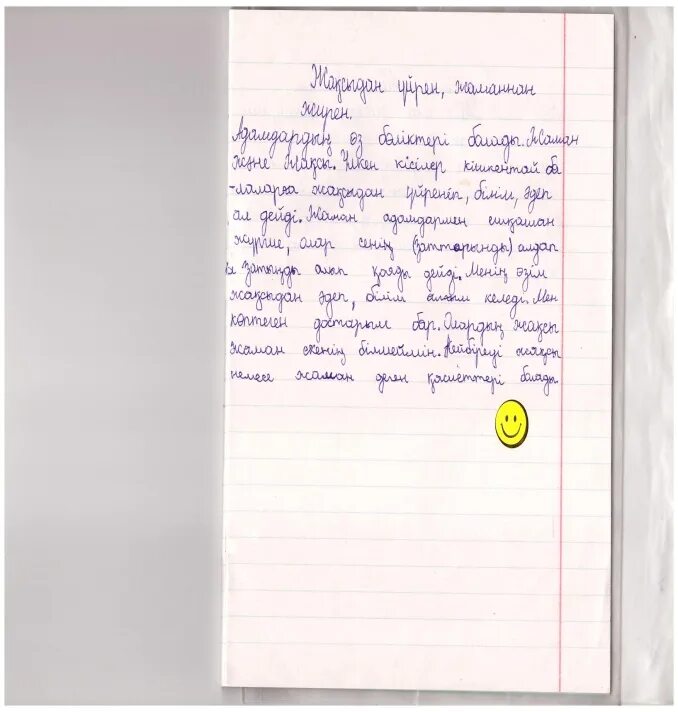 Жақсыдан үйрен, жаманнан
жирен.
Адамдардың өз бөліктері болады. Жаман
және Жақсы. Үлкен кісілер кішкентай ба
-лаларға жақсыдан үйреніп, білім, әдеп
ал дейді. Жаман адамдармен ешқашан
жүрме, олар сенің (заттарыңды) алдап
затыңды алып қояды дейді. Менің өзім
жақсыдан әдеп, білім алғым келеді. Мен
көптеген достарым бар. Олардың жақсы
жаман екенің білмеймін. Кейбіреуі жақсы
немесе жаман деген қасиеттері болады.